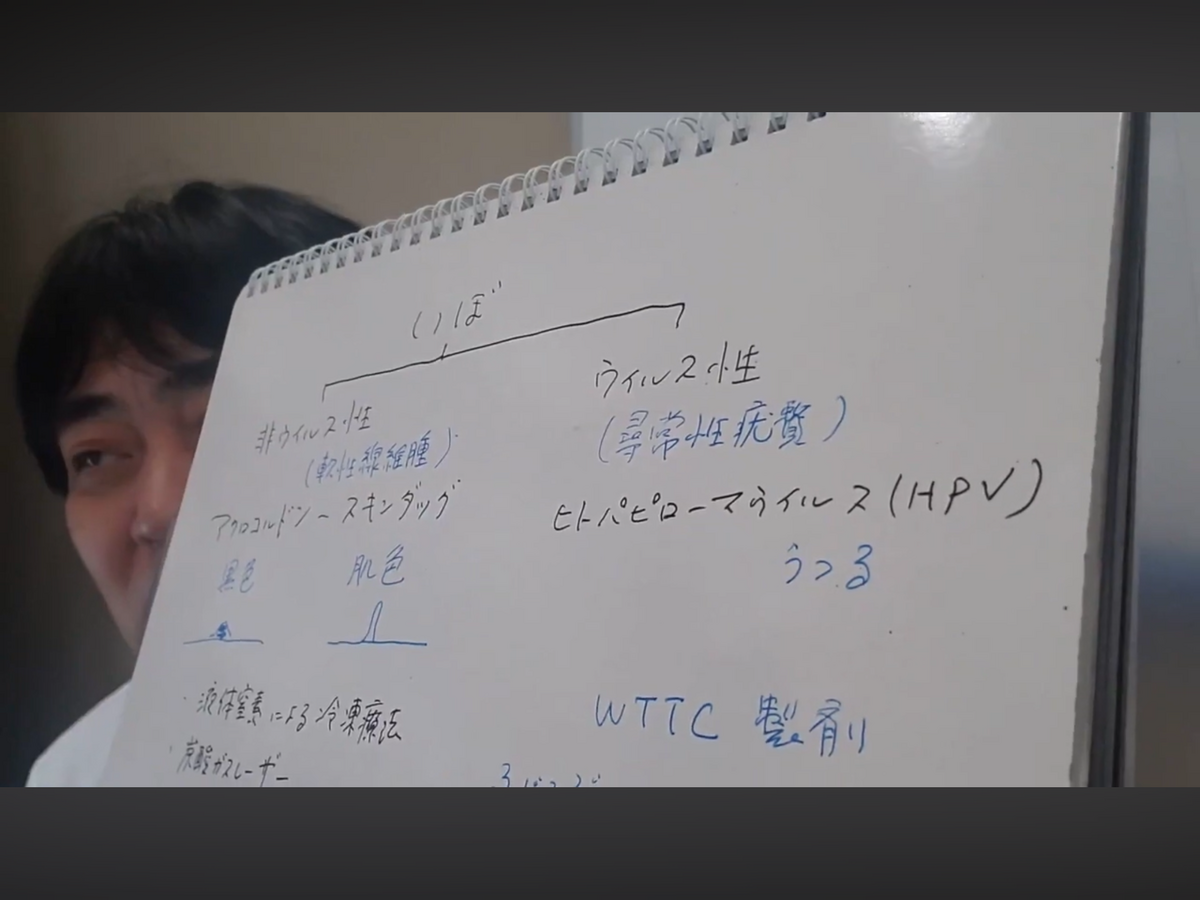 いぼ
非ウイルス性
(軟性線維腫)
アクロコルドン～スキンダッグ
黒色 肌色
・液体窒素による冷凍療法
・炭酸ガスレーザー
ウイルス性
(尋常性疣贅)
ヒトパピローマウイルス(HPV)
うつる
WTTC 製剤